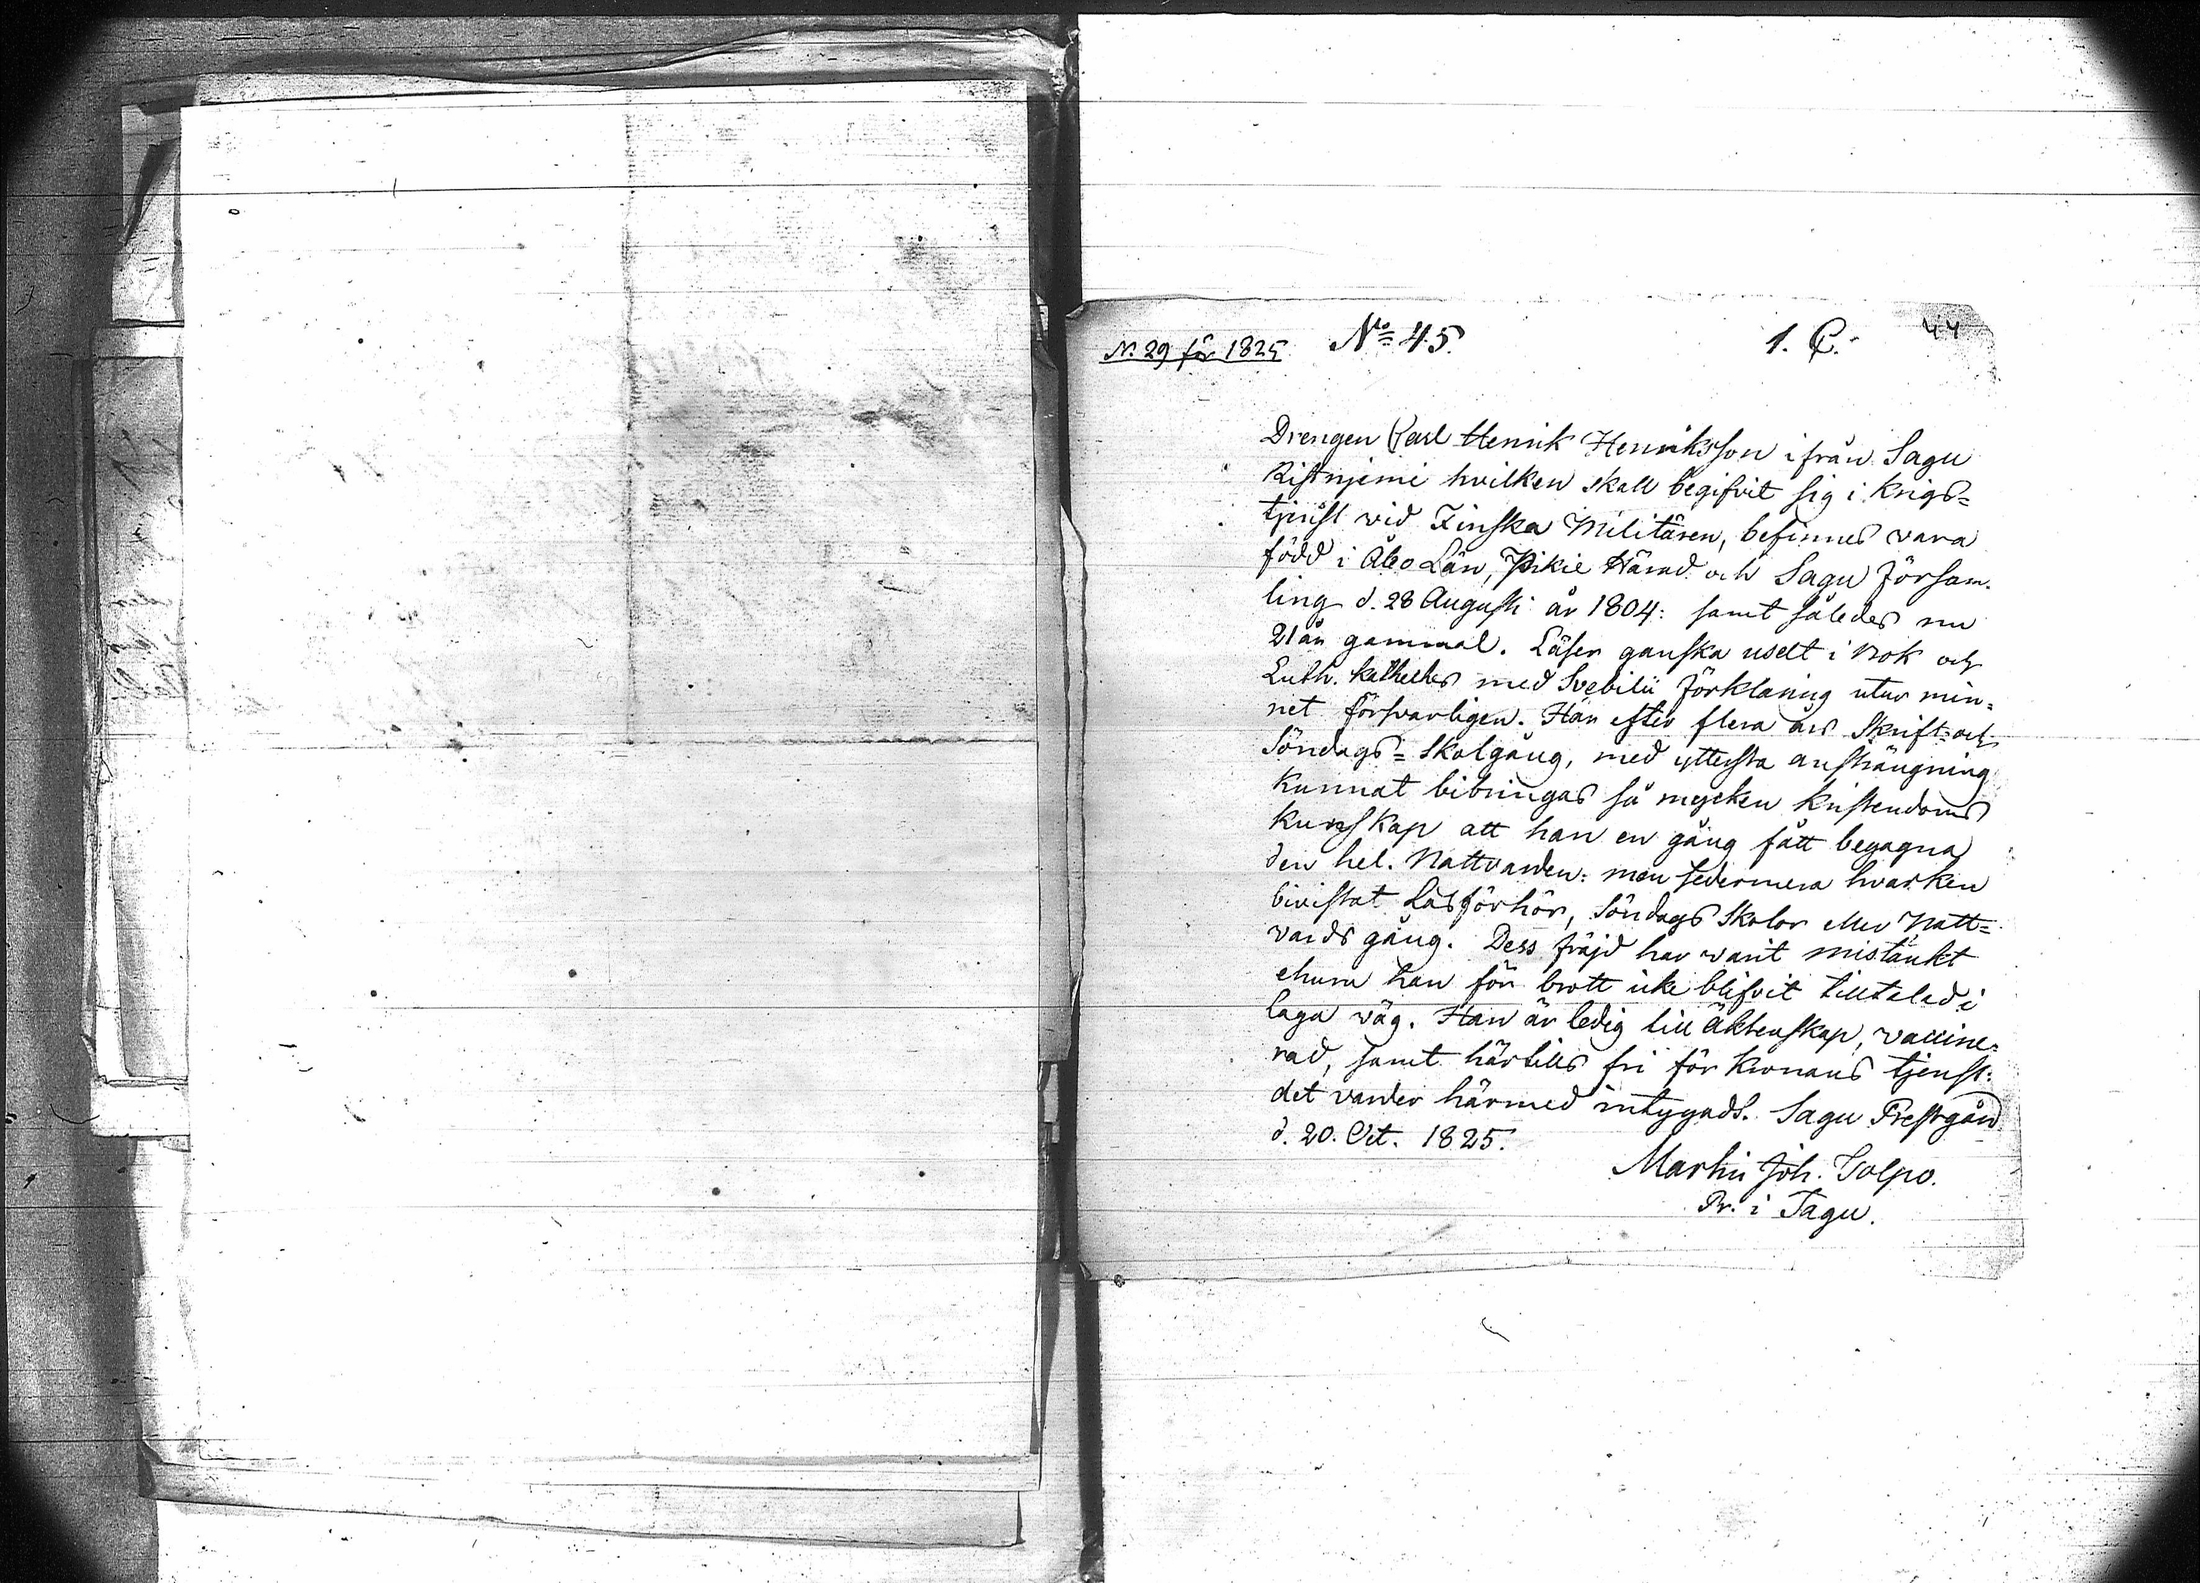 N. 29 för 1825 No 45. 1. C. 44
Drengen Carl Henrik Henriksson ifrån Sagu
Ristnjemi hvilken skall begifvit sig i krigs=
tjenst vid Finska Militären, befinnes vara
född i Åbo Län, Pikie Härad och Sagu Försam-
ling d. 28 Augusti år 1804: samt således nu
21 år gammal. Läser ganska uselt i Bok och
Luth. Katheches med Svebilii Förklaring utur min=
net försvarligen. Han efter flera års Skrift- och
Söndags=Skolgång, med yttersta ansträngning
kunnat bibringas så mycken kristendoms
kunskap att han en gång fått begagna
den hel. Nattvarden: men sedermera hvarken
bivistat Läsförhör, Söndags Skolor eller Natt=
vards gång. Dess fräjd har varit misstänkt
ehuru han för brott icke blifvit tilltalad i
laga väg. Han är ledig till Äktenskap, vaccine=
rad, samt härtills fri för Kronans tjenst:
det varder härmed intygadt. Sagu Prestgård
d. 20. Oct. 1825.
Martin Joh. Tolpo.
Pr. i Sagu.